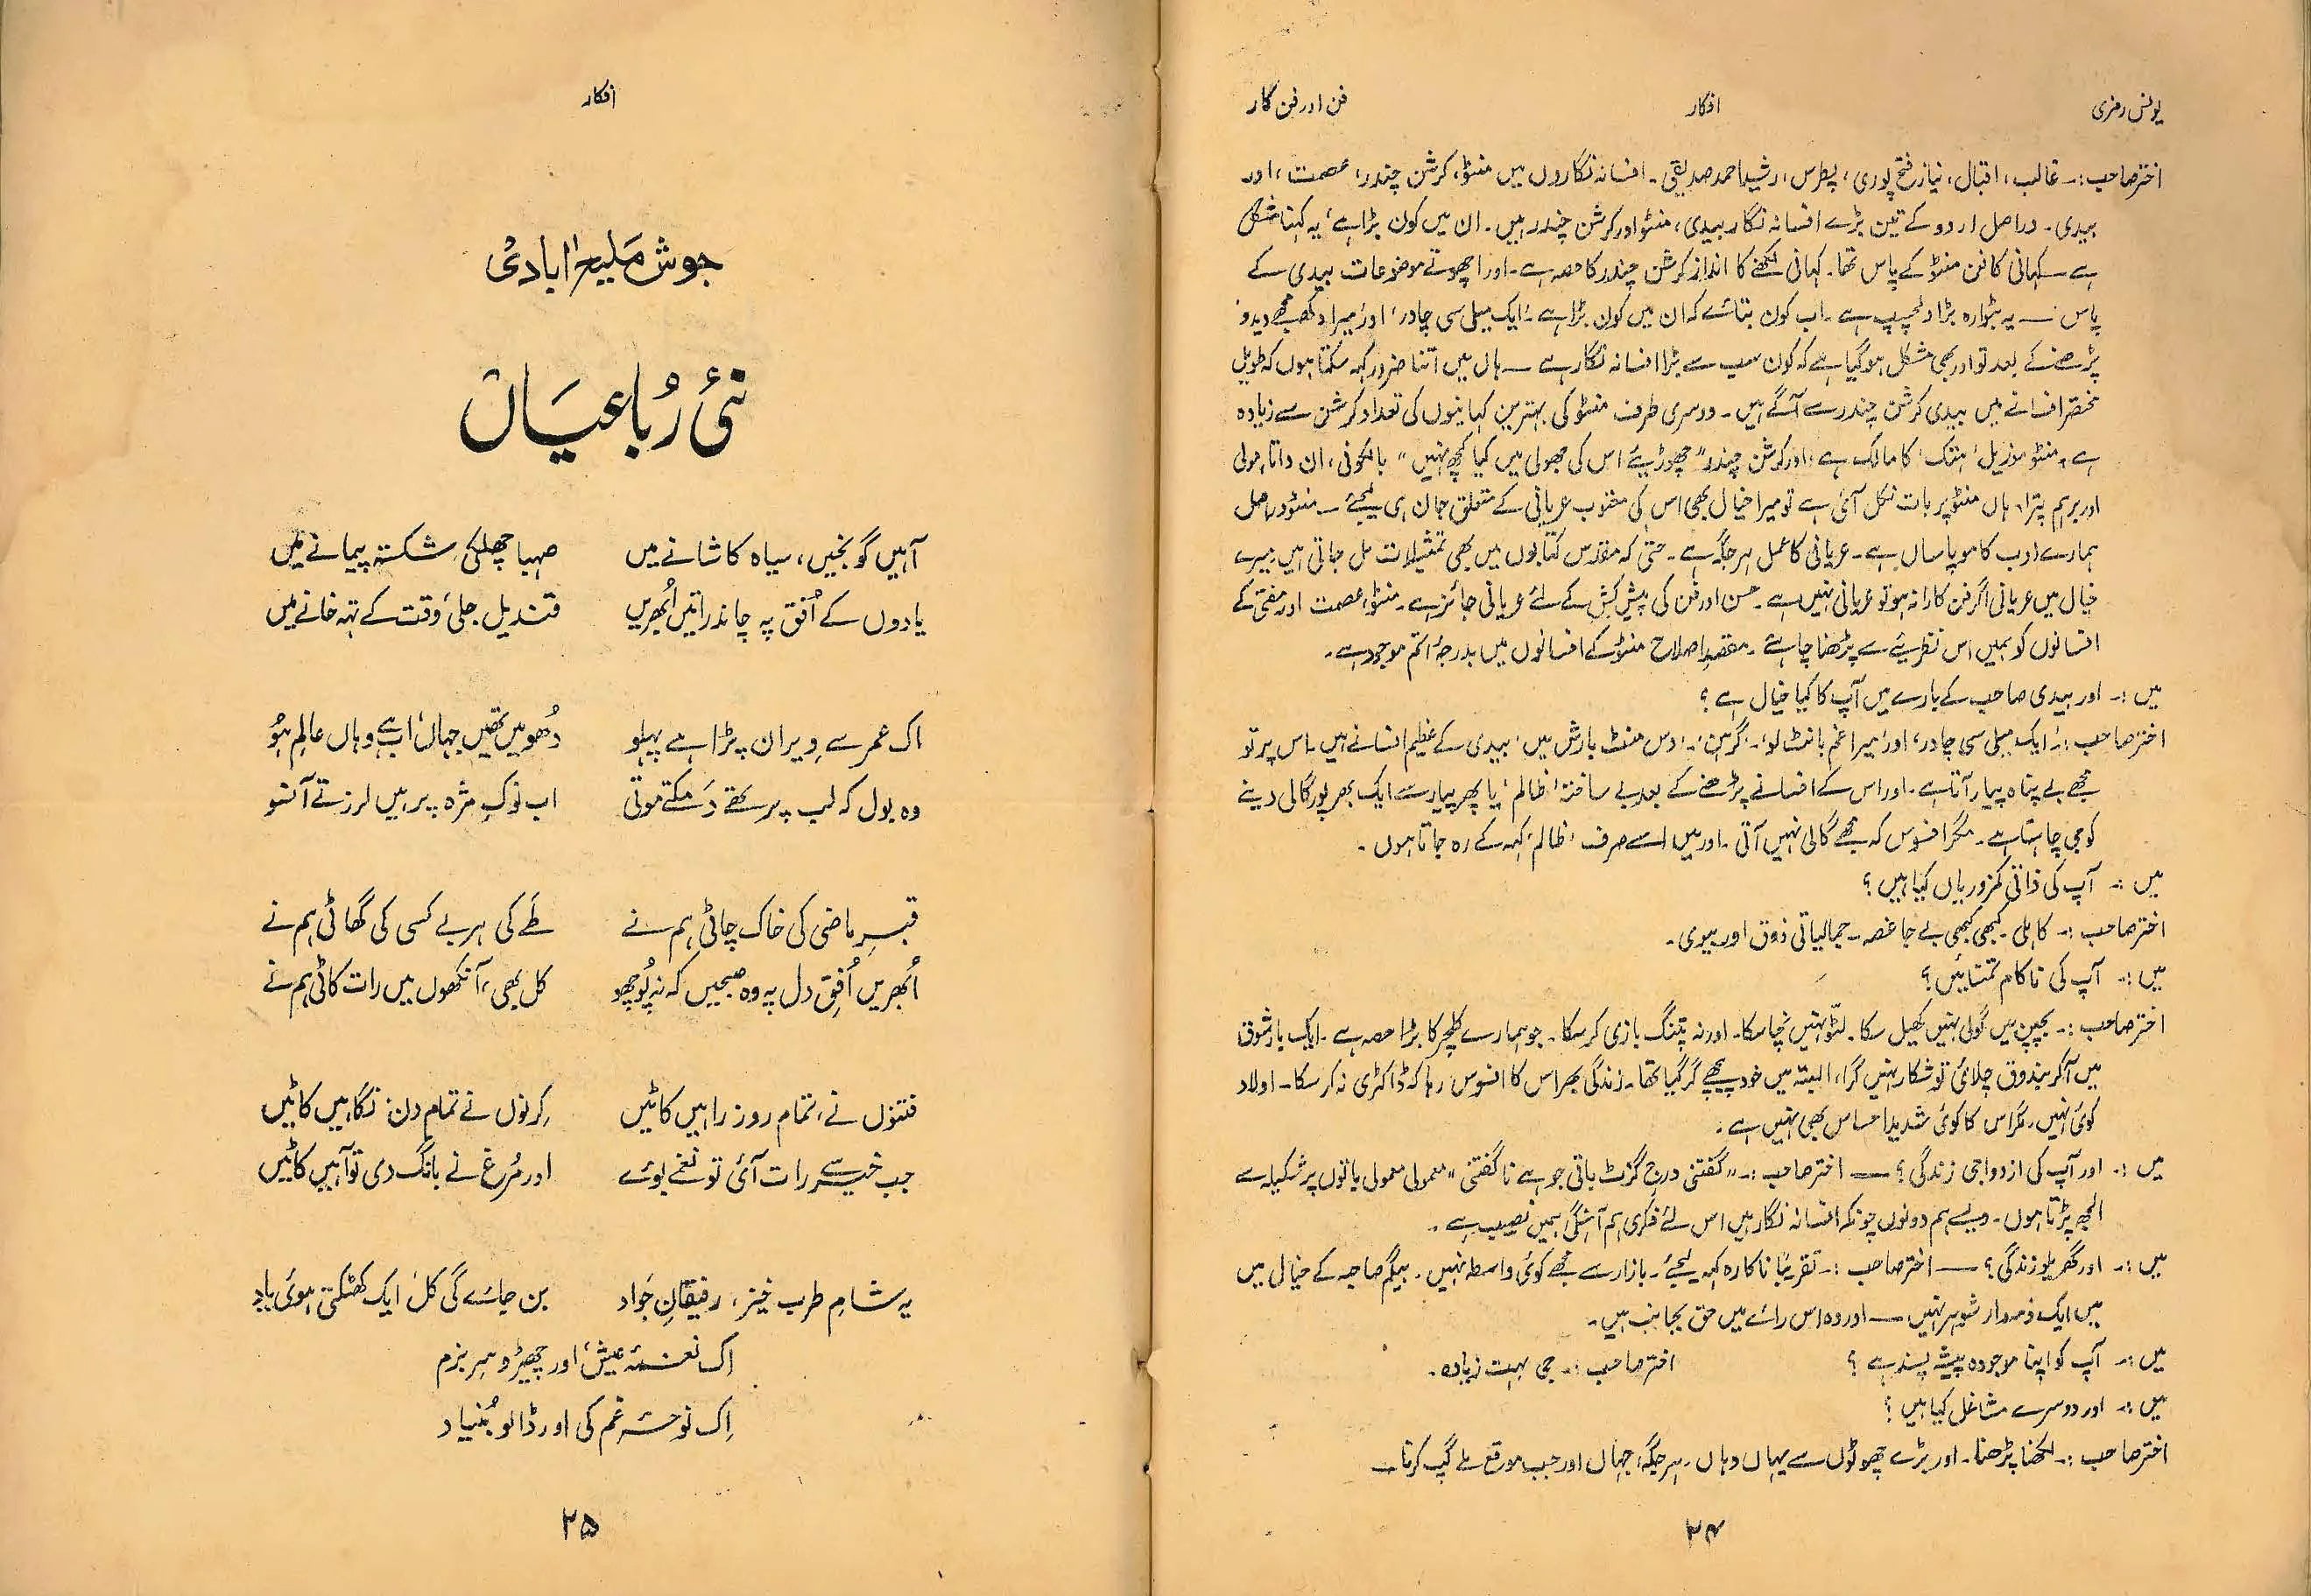 یونس رمزی
افکار
فن اور فن کار
اختر صاحب :۔ غالب، اقبال، نیاز فتح پوری، پطرس، رشید احمد صدیقی۔ افسانہ نگاروں میں منٹو، کرشن چندر، عصمت، اور
بیدی۔ دراصل اردو کے تین بڑے افسانہ نگار بیدی، منٹو اور کرشن چندر ہیں۔ ان میں کون بڑا ہے، یہ کہنا مشکل
ہے۔ کہانی کا فن منٹو کے پاس تھا۔ کہانی لکھنے کا انداز کرشن چندر کا حصہ ہے۔ اور اچھوتے موضوعات بیدی کے
پاس ۔ یہ بٹوارہ بڑا دلچسپ ہے۔ اب کون بتائے کہ ان میں کون بڑا ہے۔ 'ایک میلی سی چادر' اور 'میرا دکھ مجھے دیدو'
پڑھنے کے بعد تو اور بھی مشکل ہو گیا ہے کہ کون سب سے بڑا افسانہ نگار ہے ۔ ہاں میں اتنا ضرور کہہ سکتا ہوں کہ طویل
مختصر افسانے میں بیدی کرشن چندر سے آگے ہیں۔ دوسری طرف منٹو کی بہترین کہانیوں کی تعداد کرشن سے زیادہ
ہے۔ منٹو موزیل، 'ہتک' کا مالک ہے، اور کرشن چندر "چھوڑیئے اس کی جھولی میں کیا کچھ نہیں" بالکونی، ان داتا، مولی
اور برہم پترا، ہاں منٹو پر بات نکل آئی ہے تو میرا خیال بھی اس کی معتوب عریانی کے متعلق جان ہی لیجئے ۔ منٹو دراصل
ہمارے ادب کا موپاساں ہے۔ عریانی کا عمل ہر جگہ ہے۔ حتی کہ مقدس کتابوں میں بھی تمثیلات مل جاتی ہیں، میرے
خیال میں عریانی اگر فن کارانہ ہو تو عریانی نہیں ہے۔ حسن اور فن کی پیش کش کے لئے عریانی جائز ہے۔ منٹو، عصمت اور مفتی کے
افسانوں کو ہمیں اس نظریئے سے پڑھنا چاہئے۔ مقصدِ اصلاح منٹو کے افسانوں میں بدرجۂ اتم موجود ہے۔
میں :۔ اور بیدی صاحب کے بارے میں آپ کا کیا خیال ہے ؟
اختر صاحب :۔ 'ایک میلی سی چادر' اور 'میرا غم بانٹ لو'۔ 'گرہن'۔ 'دس منٹ بارش میں' بیدی کے عظیم افسانے ہیں۔ اس پر تو
مجھے بے پناہ پیار آتا ہے۔ اور اس کے افسانے پڑھنے کے بعد بے ساختہ 'ظالم' یا پھر پیار سے ایک بھرپور گالی دینے
کو جی چاہتا ہے۔ مگر افسوس کہ مجھے گالی نہیں آتی۔ اور میں اسے صرف 'ظالم' کہہ کے رہ جاتا ہوں۔
میں :۔ آپ کی ذاتی کمزوریاں کیا ہیں ؟
اختر صاحب :۔ کاہلی۔ کبھی کبھی بے جا غصہ۔ جمالیاتی ذوق اور بیوی۔
میں :۔ آپ کی ناکام تمنائیں ؟
اختر صاحب :۔ بچپن میں گولی نہیں کھیل سکا۔ لٹّو نہیں نچا سکا۔ اور نہ پتنگ بازی کر سکا۔ جو ہمارے کلچر کا بڑا حصہ ہے۔ ایک بار شوق
میں آ کر بندوق چلائی تو شکار نہیں گرا، البتہ میں خود پیچھے گر گیا تھا۔ زندگی بھر اس کا افسوس رہا کہ ڈاکٹری نہ کر سکا۔ اولاد
کوئی نہیں، مگر اس کا کوئی شدید احساس بھی نہیں ہے۔
میں :۔ اور آپ کی ازدواجی زندگی ؟ ۔ اختر صاحب :۔ "گفتنی درجِ گزٹ باقی جو ہے ناگفتنی" معمولی معمولی باتوں پر شکیلہ سے
الجھ پڑتا ہوں۔ ویسے ہم دونوں چونکہ افسانہ نگار ہیں اس لئے فکری ہم آہنگی ہمیں نصیب ہے۔
میں :۔ اور گھریلو زندگی ؟ ۔ اختر صاحب :۔ تقریباً ناکارہ کہہ لیجئے۔ بازار سے مجھے کوئی واسطہ نہیں۔ بیگم صاحبہ کے خیال میں
میں ایک ذمہ دار شوہر نہیں ۔ اور وہ اس رائے میں حق بجانب ہیں۔
میں :۔ آپ کو اپنا موجودہ پیشہ پسند ہے ؟ اختر صاحب :۔ جی بہت زیادہ۔
میں :۔ اور دوسرے مشاغل کیا ہیں ؟
اختر صاحب :۔ لکھنا پڑھنا۔ اور بڑے چھوٹوں سے یہاں وہاں، ہر جگہ، جہاں اور جب موقع ملے گپ کرنا۔
۲۴
افکار
جوش ملیح آبادی
نئی رُباعیاں
آہیں گونجیں، سیاہ کاشانے میں صہبا چھلکی، شکستہ پیمانے میں
یادوں کے اُفق پہ چاند راتیں اُبھریں قندیل جلی، وقت کے تہہ خانے میں
اک عمر سے ویران پڑا ہے پہلو دُھومیں تھیں جہاں، اب ہے وہاں عالمِ ہُو
وہ بول کہ لب پر تھے دَمکتے موتی اب نوکِ مژہ پر ہیں لرزتے آنسو
قبرِ ماضی کی خاک چاٹی ہم نے طے کی ہر بے کسی کی گھاٹی ہم نے
اُبھریں اُفقِ دل پہ وہ صبحیں کہ نہ پُوچھ کل بھی، آنکھوں میں رات کاٹی ہم نے
فتنوں نے، تمام روز راہیں کاٹیں کرنوں نے تمام دن، نگاہیں کاٹیں
جب خیر سے رات آئی تو نغمے بوئے اور مُرغ نے بانگ دی تو آہیں کاٹیں
یہ شامِ طرب خیز، رفیقانِ جَواد بن جائے گی کل، ایک کھٹکتی ہوئی یاد
اِک نغمۂ عیش، اور چھیڑو سرِ بزم
اِک نوحۂ غم کی اور ڈالو بُنیاد
۲۵